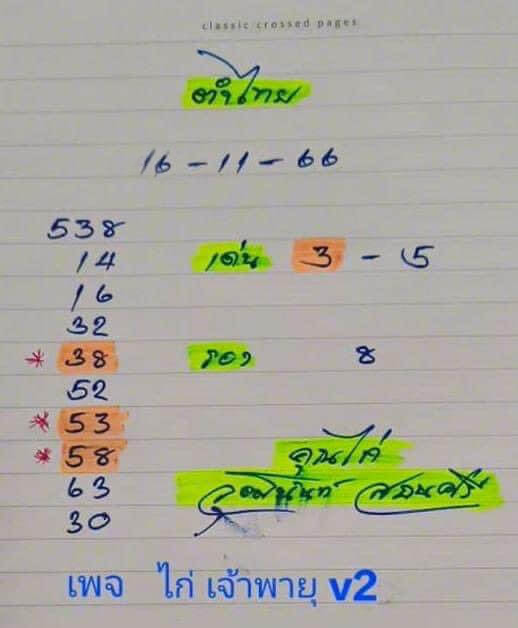 classic crossed pages
ตำไทย
16 - 11 - 66
538
14 เด่น 3 - 5
16
32
* 38 รอง 8
52
* 53
* 58 คุณไก่
63
30
เพจ ไก่ เจ้าพายุ v2